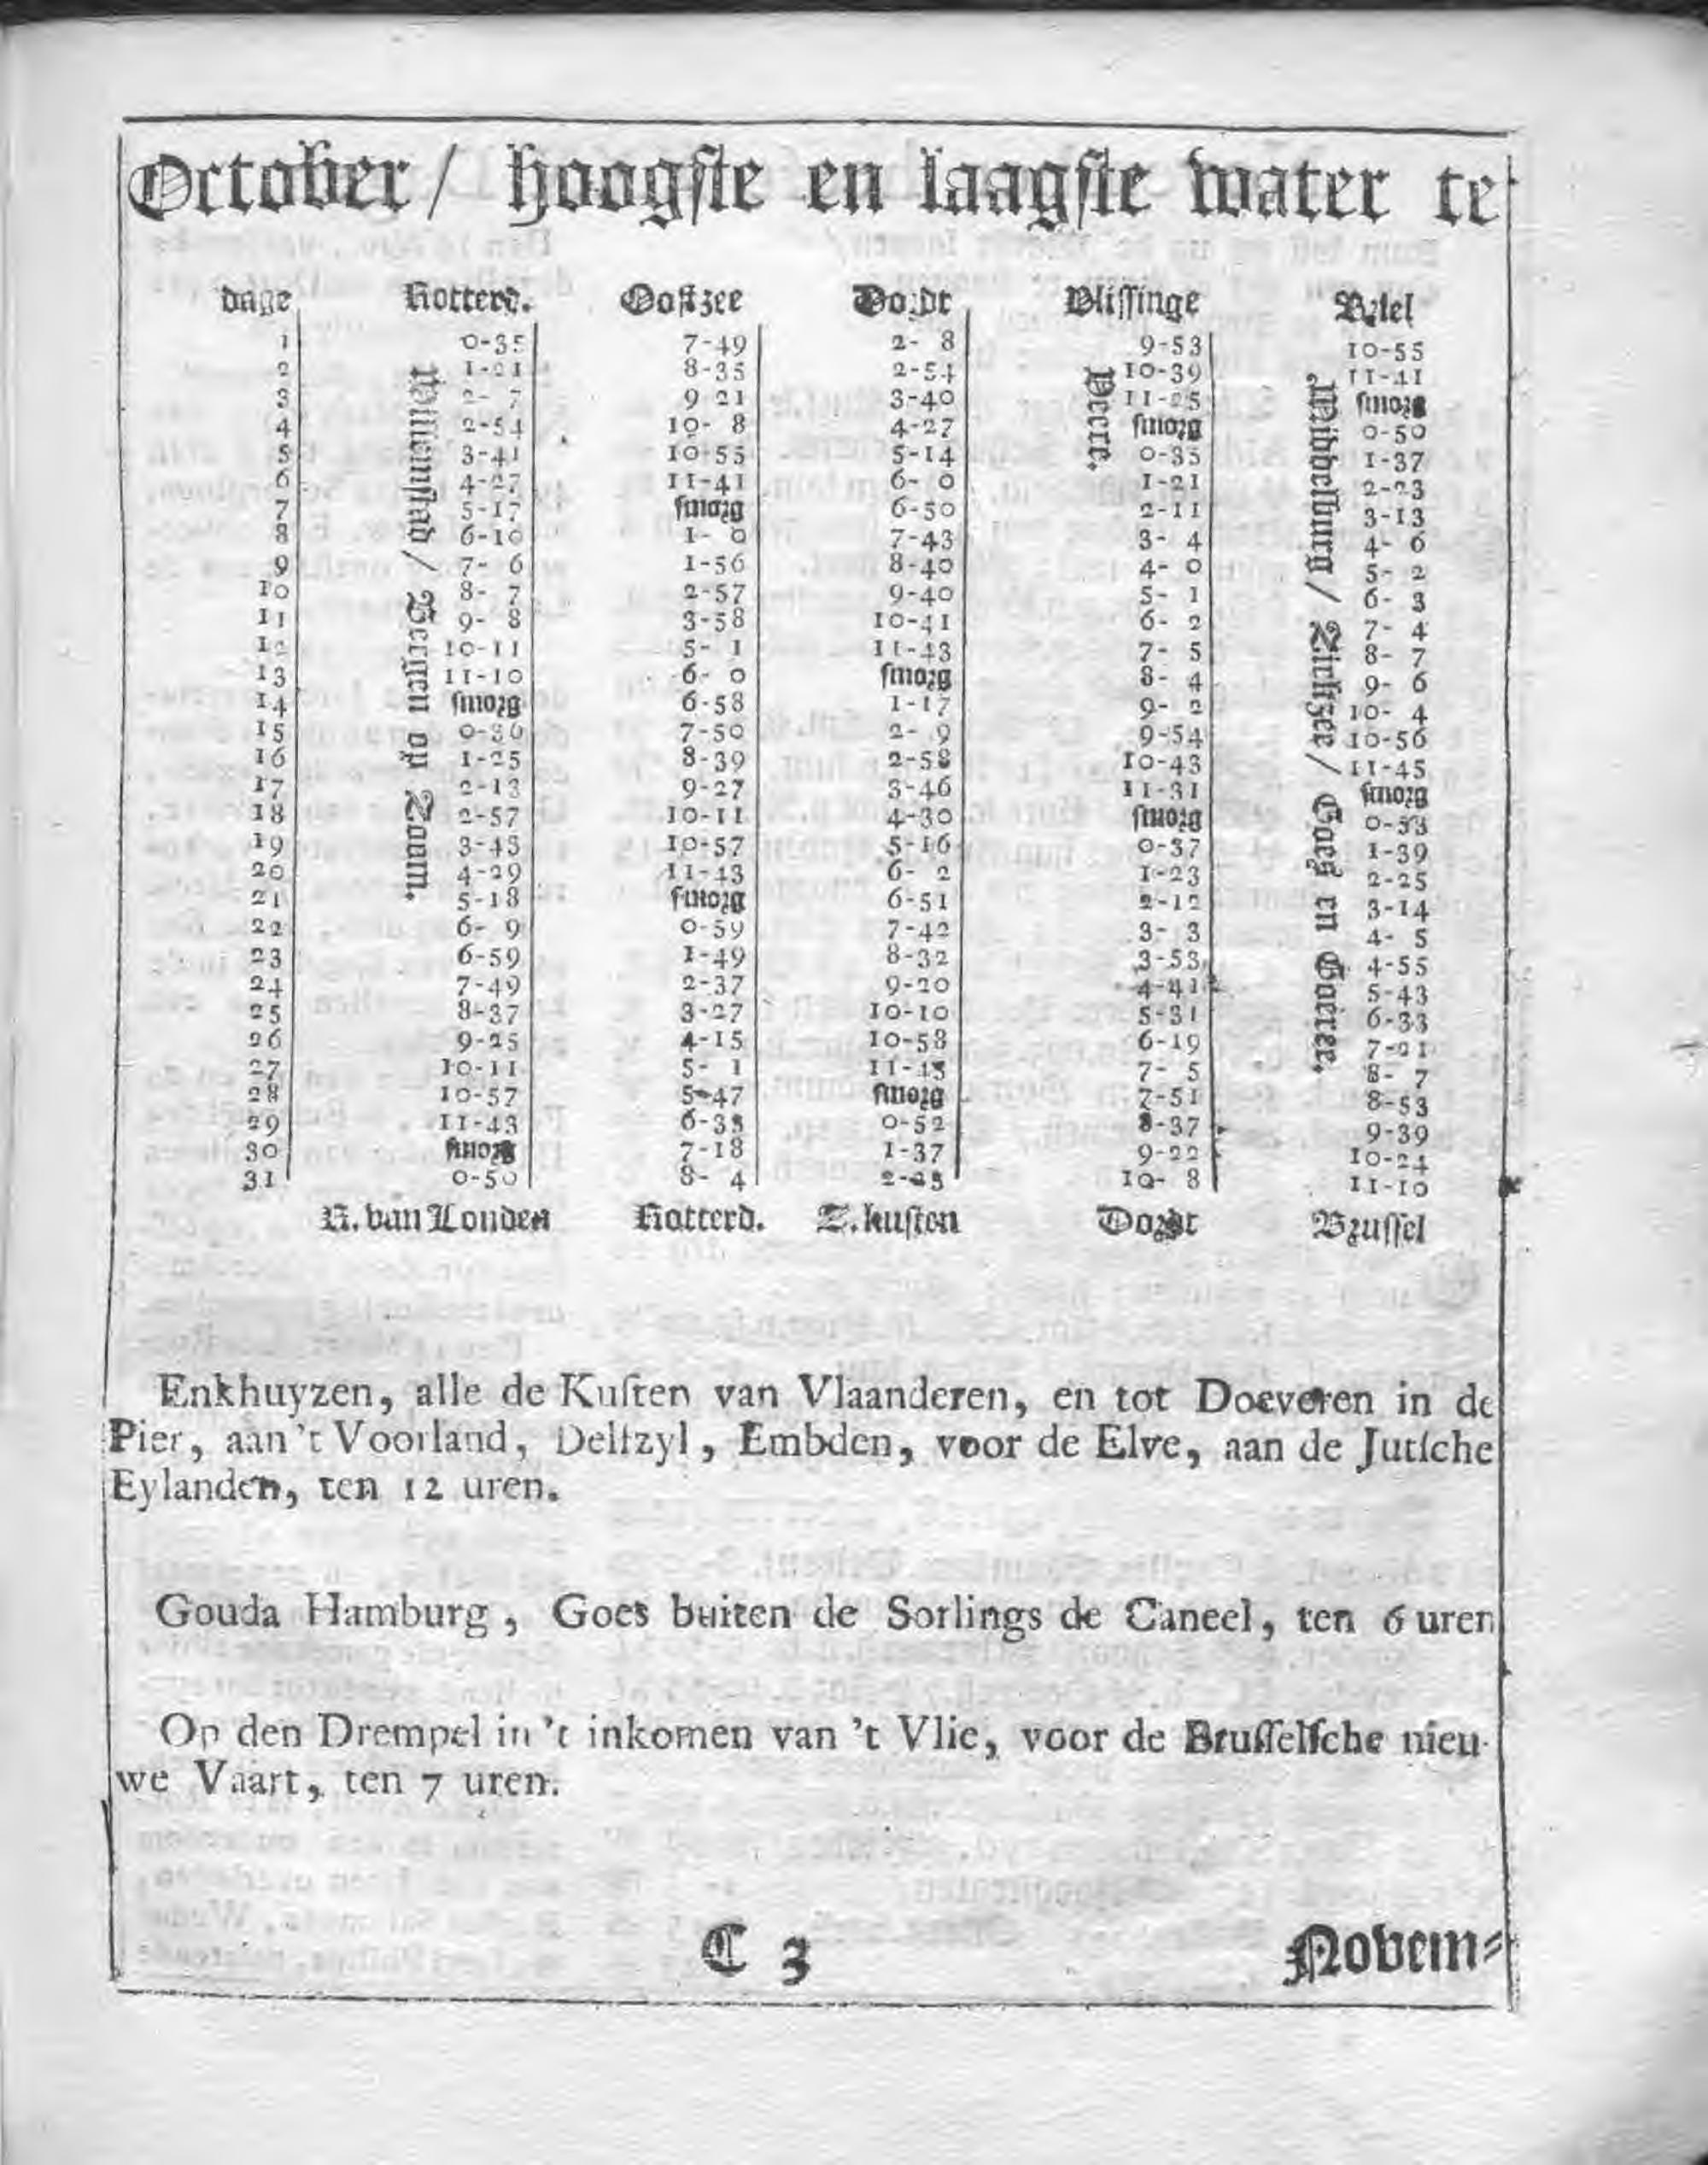 October / hoogste en laagste water te
dage Rotterd. Oostzee Dordt Vlissinge Briel
1 0-35 7-49 2- 8 9-53 10-55
2 1-21 8-35 2-54 10-39 11-41
3 2- 7 9 21 3-40 11-25 smorg
4 2-54 10- 8 4-27 smorg 0-50
5 3-41 10-55 5-14 0-35 1-37
6 4-27 11-41 6- 0 1-21 2-23
7 5-17 smorg 6-50 2-11 3-13
8 6-10 1- 0 7-43 3- 4 4- 6
9 7- 6 1-56 8-40 4- 0 5- 2
10 8- 7 2-57 9-40 5- 1 6- 3
11 9- 8 3-58 10-41 6- 2 7- 4
12 10-11 5- 1 11-43 7- 5 8- 7
13 11-10 6- 0 smorg 8- 4 9- 6
14 smorg 6-58 1-17 9- 2 10- 4
15 0-36 7-50 2- 9 9-54 10-56
16 1-25 8-39 2-58 10-43 11-45
17 2-13 9-27 3-46 11-31 smorg
18 2-57 10-11 4-30 smorg 0-53
19 3-43 10-57 5-16 0-37 1-39
20 4-29 11-43 6- 2 1-23 2-25
21 5-18 smorg 6-51 2-12 3-14
22 6- 9 0-59 7-42 3- 3 4- 5
23 6-59 1-49 8-32 3-53 4-55
24 7-49 2-37 9-20 4-41 5-43
25 8-37 3-27 10-10 5-31 6-33
26 9-25 4-15 10-58 6-19 7-21
27 10-11 5- 1 11-43 7- 5 8- 7
28 10-57 5-47 smorg 7-51 8-53
29 11-43 6-33 0-52 8-37 9-39
30 smorg 7-18 1-37 9-22 10-24
31 0-50 8- 4 2-23 10- 8 11-10
Willemstad / Bergen op Zoom.
Veere.
Middelburg / Zierikzee / Goes en Goeree.
R. van Londen Rotterd. Z. kusten Dordt Brussel
Enkhuyzen, alle de Kusten van Vlaanderen, en tot Doeveren in de
Pier, aan 't Voorland, Delfzyl, Embden, voor de Elve, aan de Jutsche
Eylanden, ten 12 uren.
Gouda Hamburg, Goes buiten de Sorlings de Caneel, ten 6 uren
Op den Drempel in 't inkomen van 't Vlie, voor de Brusselsche nieu-
we Vaart, ten 7 uren.
C 3 Novem-